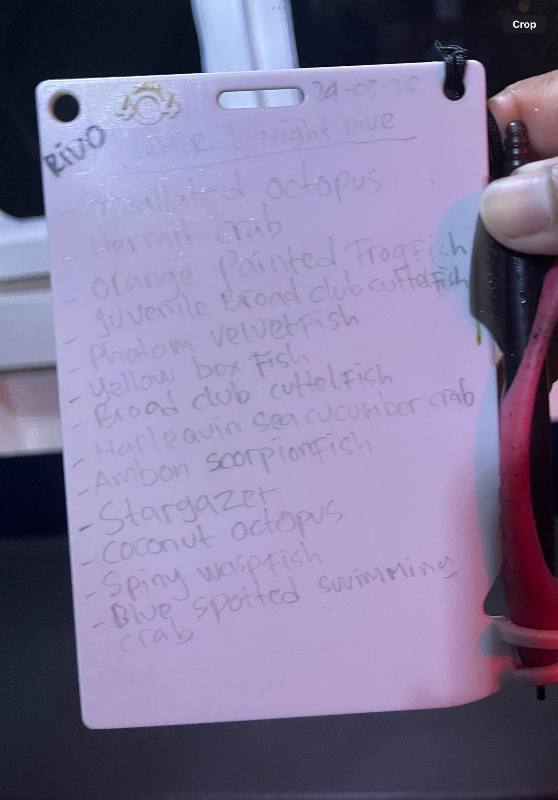 Crop
RIVO
Night Dive
octopus
- Hermit crab
- Orange Painted Frogfish
- Juvenile Broad club cuttelfish
- Phatom velvetfish
- Yellow box Fish
- Broad club cuttelfish
- Harlequin sea cucumber crab
- Ambon scorpionfish
- Stargazer
- Coconut octopus
- Spiny waspfish
- Blue spotted swimming
crab